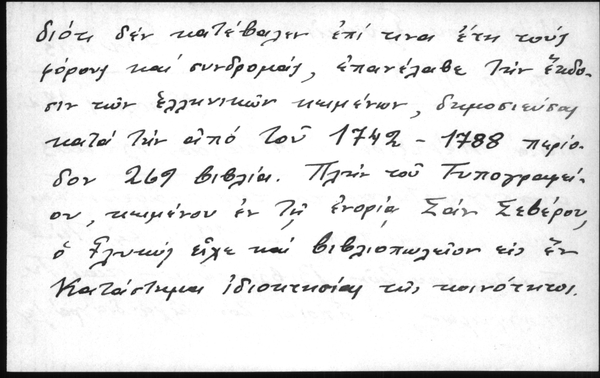 διότι δέν κατέβαλεν ἐπί τινα ἔτη τούς
φόρους καί συνδρομάς, ἐπανέλαβε τήν ἔκδο-
σιν τῶν ἑλληνικῶν κειμένων, δημοσιεύσας
κατά τήν ἀπό τοῦ 1742 - 1788 περίο-
δον 269 βιβλία. Πλήν τοῦ Τυπογραφεί-
ου, κειμένου ἐν τῇ ἐνορίᾳ Σάν Σεβέρου,
ὁ Γλυκύς εἶχε καί βιβλιοπωλεῖον εἰς ἕν
Κατάστημα ἰδιοκτησίας τῆς κοινότητος.